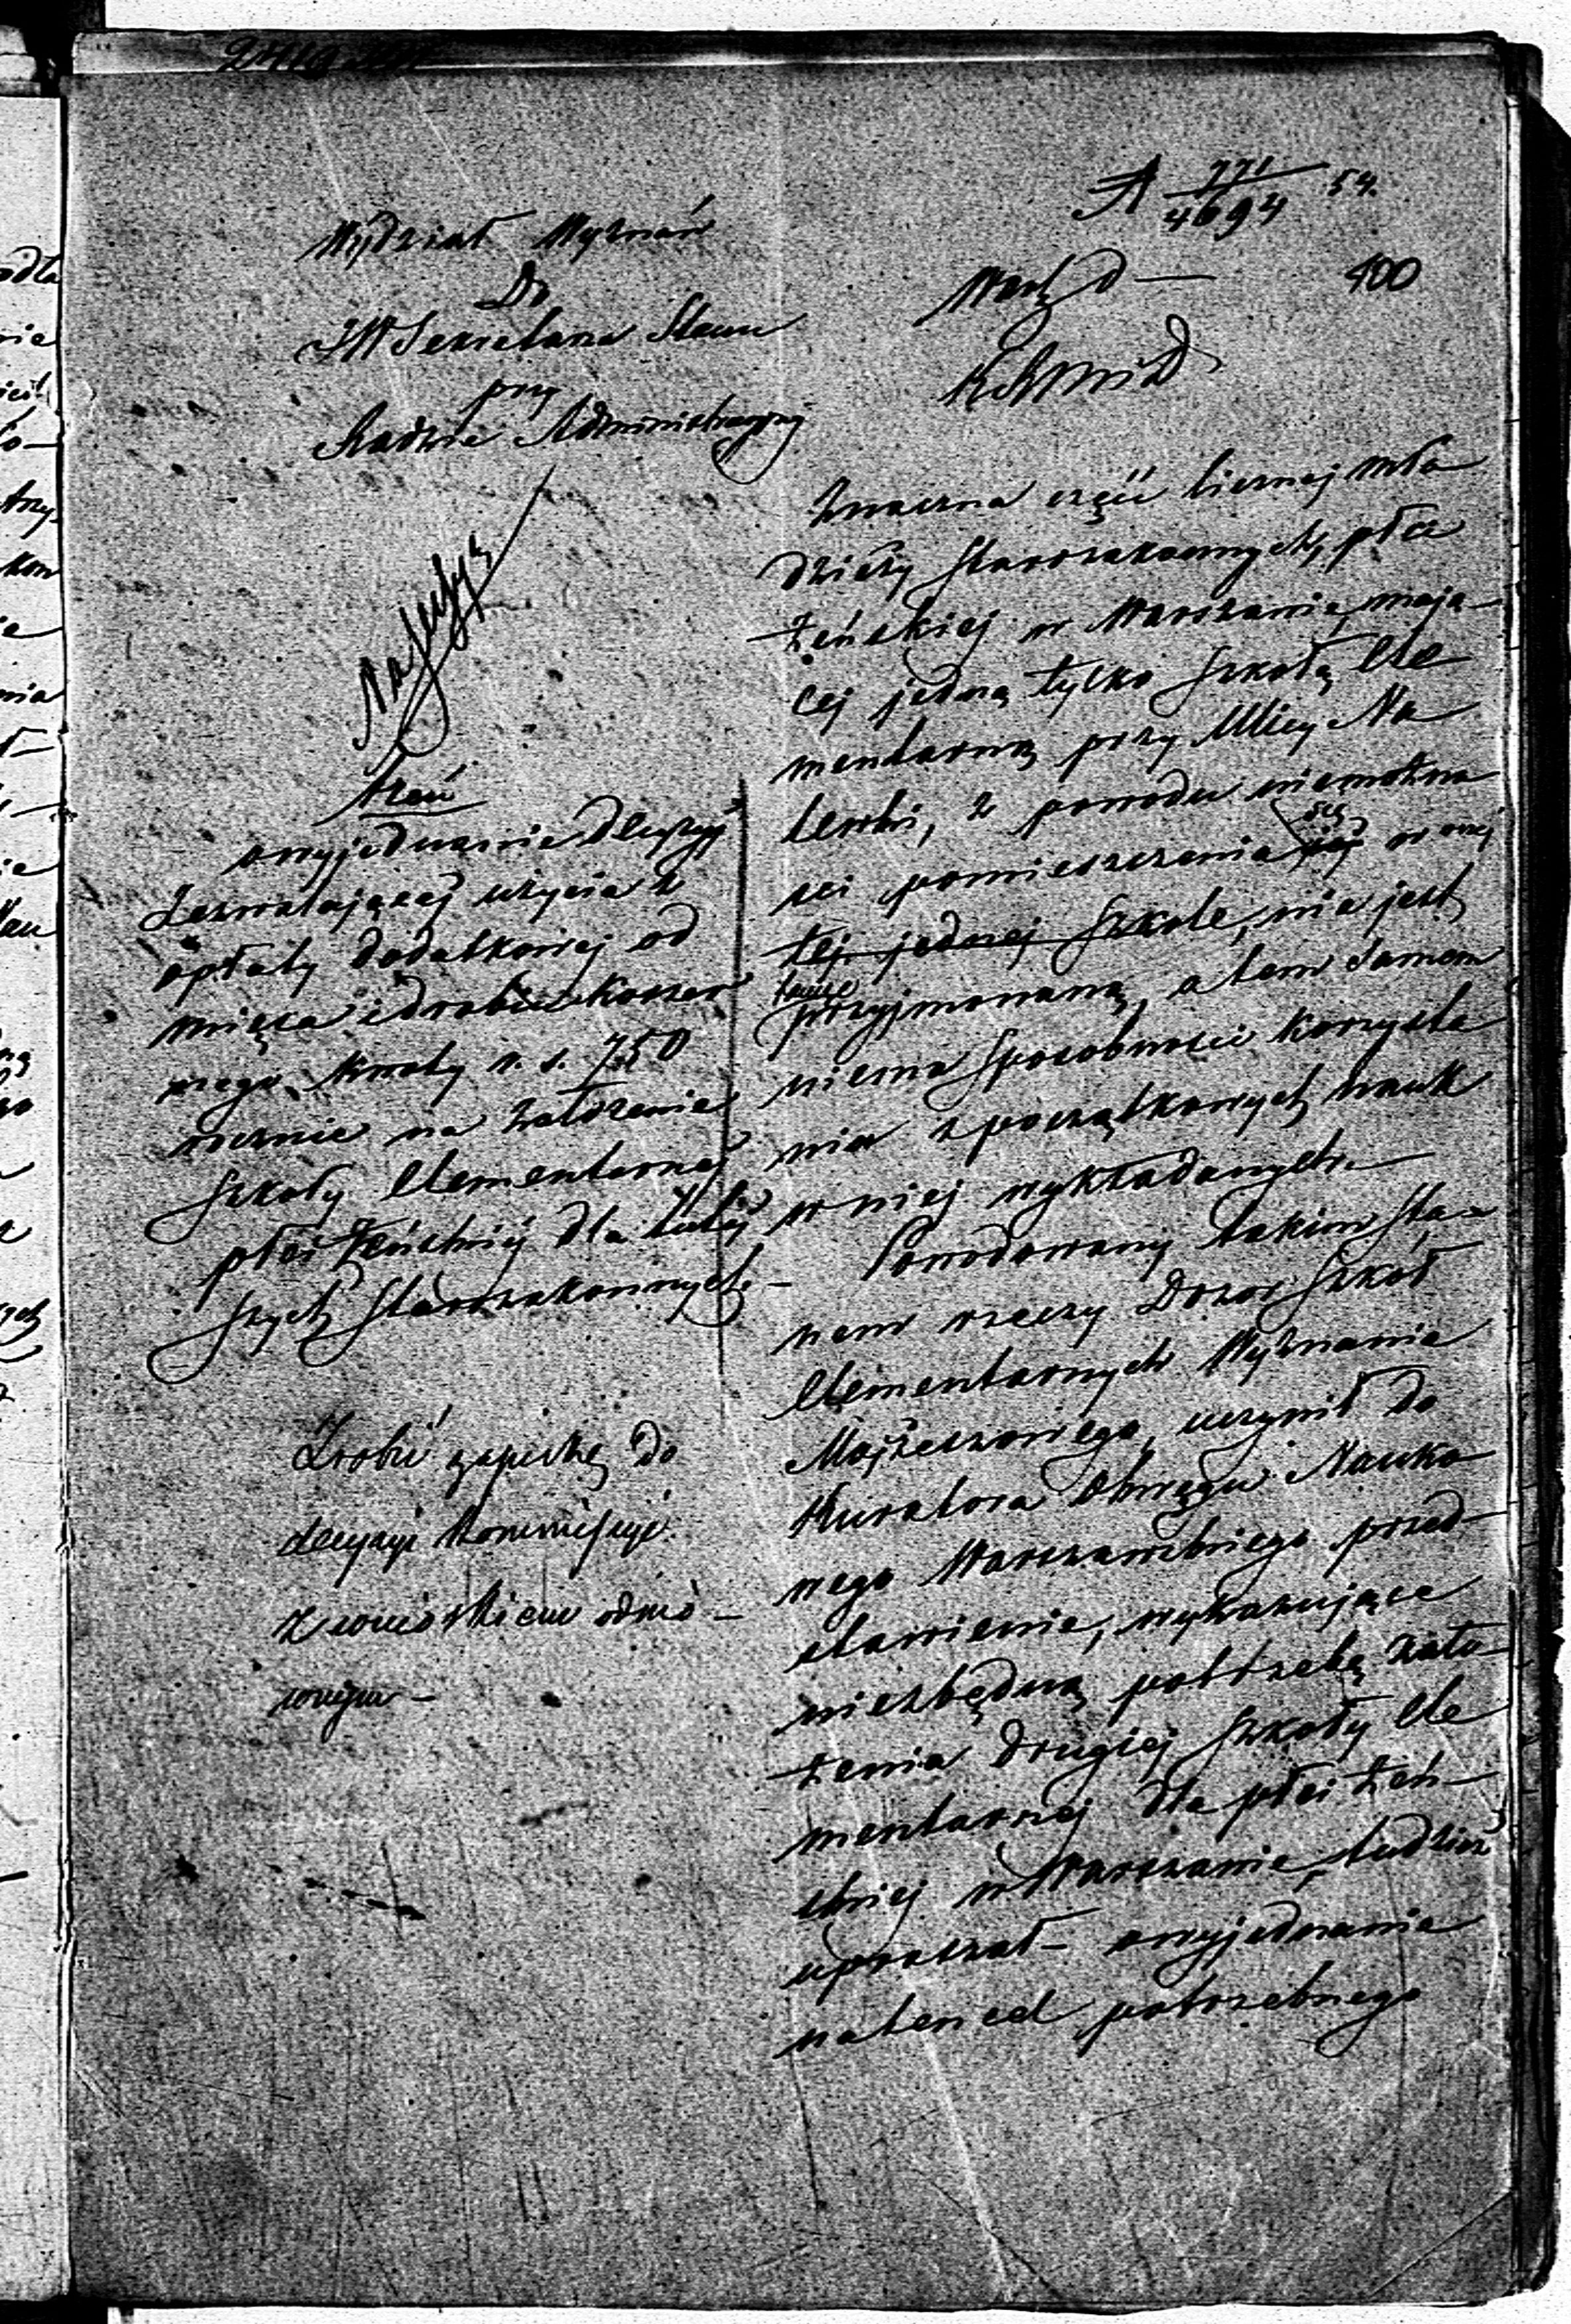 A 771/4694 54.
400
Wydział Wyznań
Do
JW Sekretarza Stanu
przy
Radzie Administracyjnej
Warsz d —
KRSWiD
Treść
wyjednanie decyzyi
zezwalającej użycia z
opłaty dodatkowej od
mięsa i drobiu koszer
nego kwoty r. s. 750
rocznie na założenie
szkoły Elementarnej
płci Żeńskiej dla tutej
szych Starozakonnych. —
Zrobić zapiskę do
decyzyi Kommissyi
z wnioskiem odmo-
wnym —
Znaczna część licznej mło
dzieży Starozakonnych, płci
żeńskiej w Warszawie, mają-
cej jedną tylko szkołę Ele
mentarną przy Ulicy Na
lewki, z powodu niemożno
ści pomieszczenia się w onej
tej jednej Szkole, nie jest
tamże
przyjmowaną, a tem samem
niema sposobności korzysta
nia z początkowych nauk
w niej wykładanych. —
Powodowany takim sta-
nem rzeczy Dozór Szkół
Elementarnych Wyznania
Mojżeszowego, uczynił do
Kuratora Okręgu Nauko
wego Warszawskiego przed-
stawienie, wykazujące
niezbędną potrzebę zało-
żenia drugiej szkoły Ele
mentarnej dla płci żeń-
skiej w Warszawie, tudzież
upraszał — wyjednanie
naten cel potrzebnego